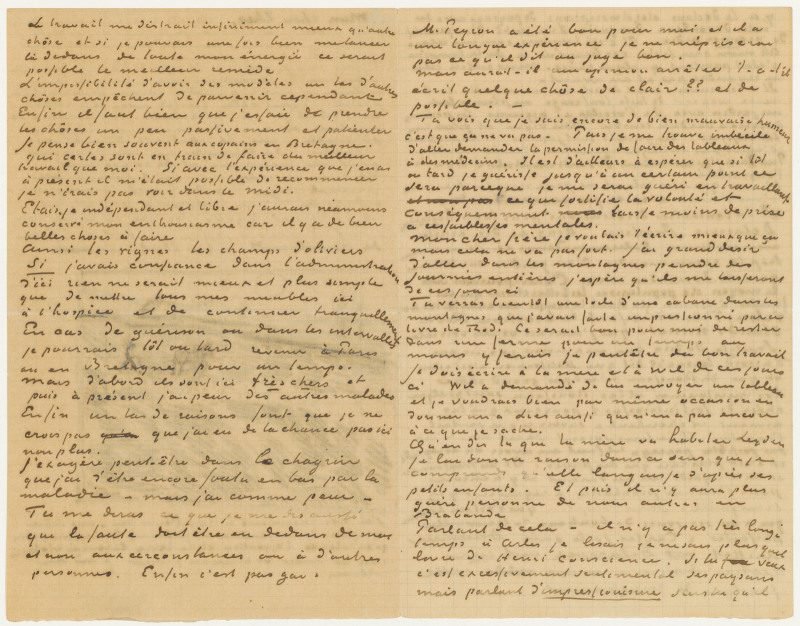 Le travail me distrait infiniment mieux qu'autre
chôse et si je pouvais une fois bien me lancer
là dedans de toute mon énergie ce serait
possible le meilleur remède
L'impossibilité d'avoir des modèles un tas d'autres
chôses empêchent de parvenir cependant
Enfin il faut bien que j'essaie de prendre
les chôses un peu passivement et patienter
Je pense bien souvent aux copains en Bretagne.
qui certes sont en train de faire du meilleur
travail que moi. Si avec l'expérience que j'en ai
à présent il m'était possible de recommencer
je n'irais pas voir dans le midi.
Étais je indépendant et libre j'aurais néanmoins
conservé mon enthousiasme car il y a de bien
belles choses à faire
Ainsi les vignes les champs d'oliviers
Si j'avais confiance dans l'administration
d'ici rien ne serait mieux et plus simple
que de mettre tous mes meubles ici
à l'hospice et de continuer tranquillement
En cas de guérison ou dans les intervalles
je pourrais tôt ou tard revenir à Paris
ou en Bretagne pour un temps.
Mais d'abord ils sont ici très chers et
puis à présent j'ai peur des autres malades
Enfin un tas de raisons font que je ne
crois pas que j'aie eu de la chance pas ici
non plus.
J'exagère peut-être dans le chagrin
que j'ai d'être encore foutu en bas par la
maladie – mais j'ai comme peur –
Tu me diras ce que je me dis aussi
que la faute doit être en dedans de moi
et non aux circonstances ou à d'autres
personnes. Enfin c'est pas gai.
M. Peyron a été bon pour moi et il a
une longue expérience je ne mépriserai
pas ce qu'il dit ou juge bon.
Mais aurat-il un opinion arrêtée t-a-t-il
écrit quelque chôse de clair ?? et de
possible. –
Tu vois que je suis encore de bien mauvaise humeur
c'est que ça ne va pas. Puis je me trouve imbécile
d'aller demander la permission de faire des tableaux
à des médecins. Il est d'ailleurs à espérer que si tôt
ou tard je guérisse jusqu'à un certain point ce
sera parceque je me serai guéri en travaillant
ce que fortifie la volonté et
conséquemment laisse moins de prise
à ces faiblesses mentales.
Mon cher frère je voulais t'écrire mieux que ça
mais cela ne va pas fort. J'ai grand desir
d'aller dans les montagnes peindre des
journées entières j'espère qu'ils me laisseront
de ces jours ci
Tu verras bientôt une toile d'une cabane dans les
montagnes que j'avais faite impressionné par ce
livre de Rod. Ce serait bon pour moi de rester
dans une ferme pour un temps au
moins y ferais je peutêtre du bon travail
je dois écrire à la mère et à Wil de ces jours
ci Wil a demandé de lui envoyer un tableau
et je voudrais bien par même occasion en
donner un a Lies aussi qui n'en a pas encore
à ce que je sache.
Qu'en dis tu que la mère va habiter Leyden
je lui donne raison dans ce sens que je
comprends qu'elle languisse d'après ses
petits enfants. Et puis il n'y aura plus
guère personne de nous autres en
Brabande
Parlant de cela – il n'y a pas très long-
temps à Arles je lisais je ne sais plus quel
livre de Henri Conscience. Si tu veux
c'est excessivement sentimental ses paysans
mais parlant d'impressionisme sais tu qu'il